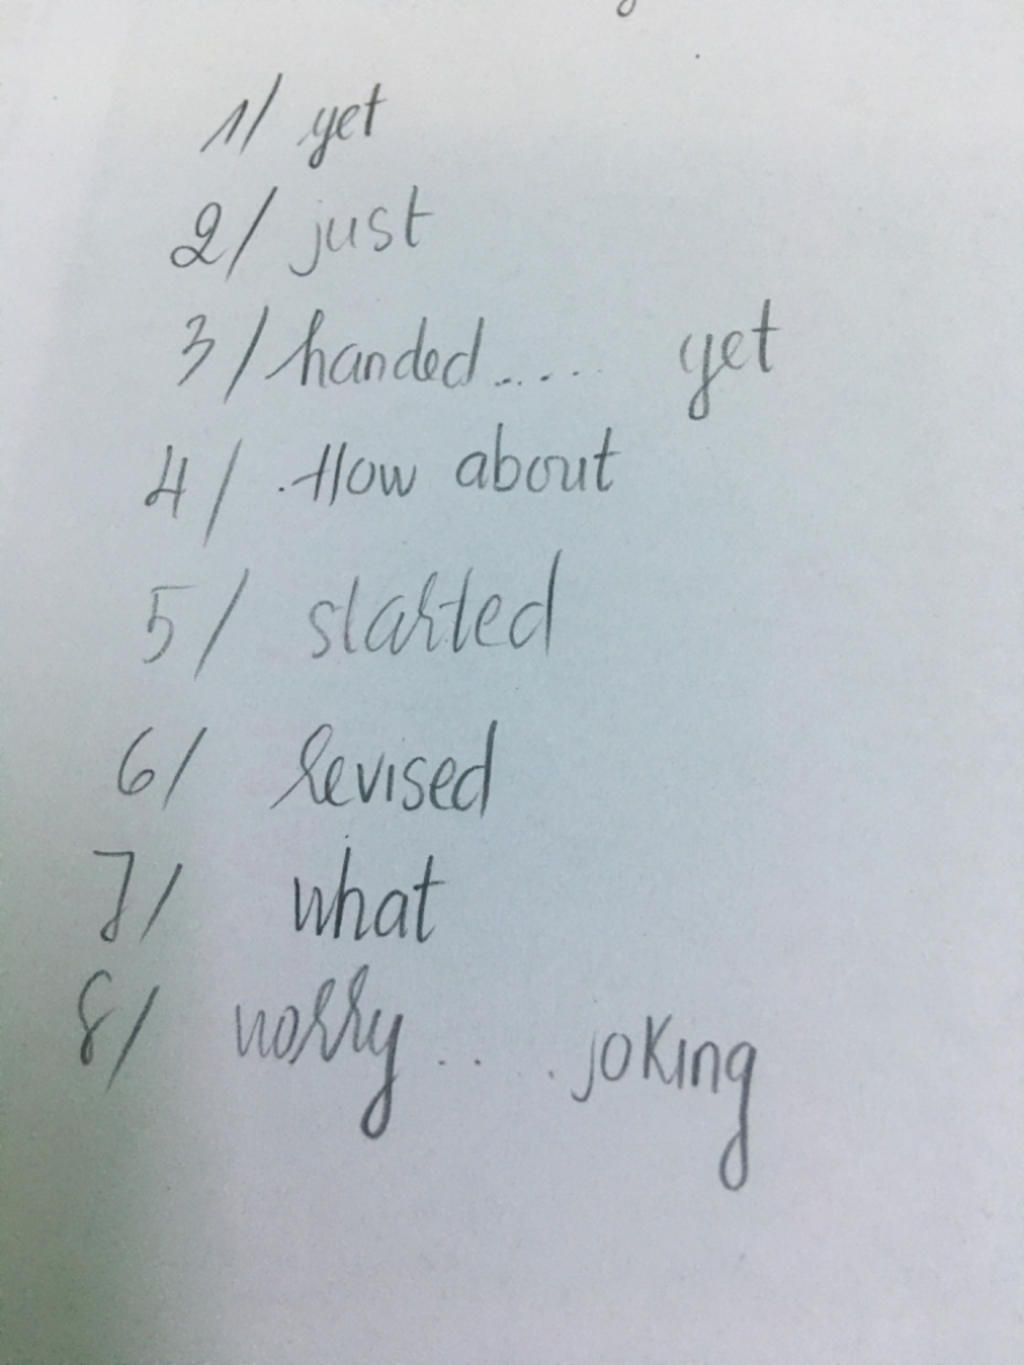 1/ yet
2/ just
3/ handed.... yet
4/ .How about
5/ started
6/ revised
7/ what
8/ worry... joking